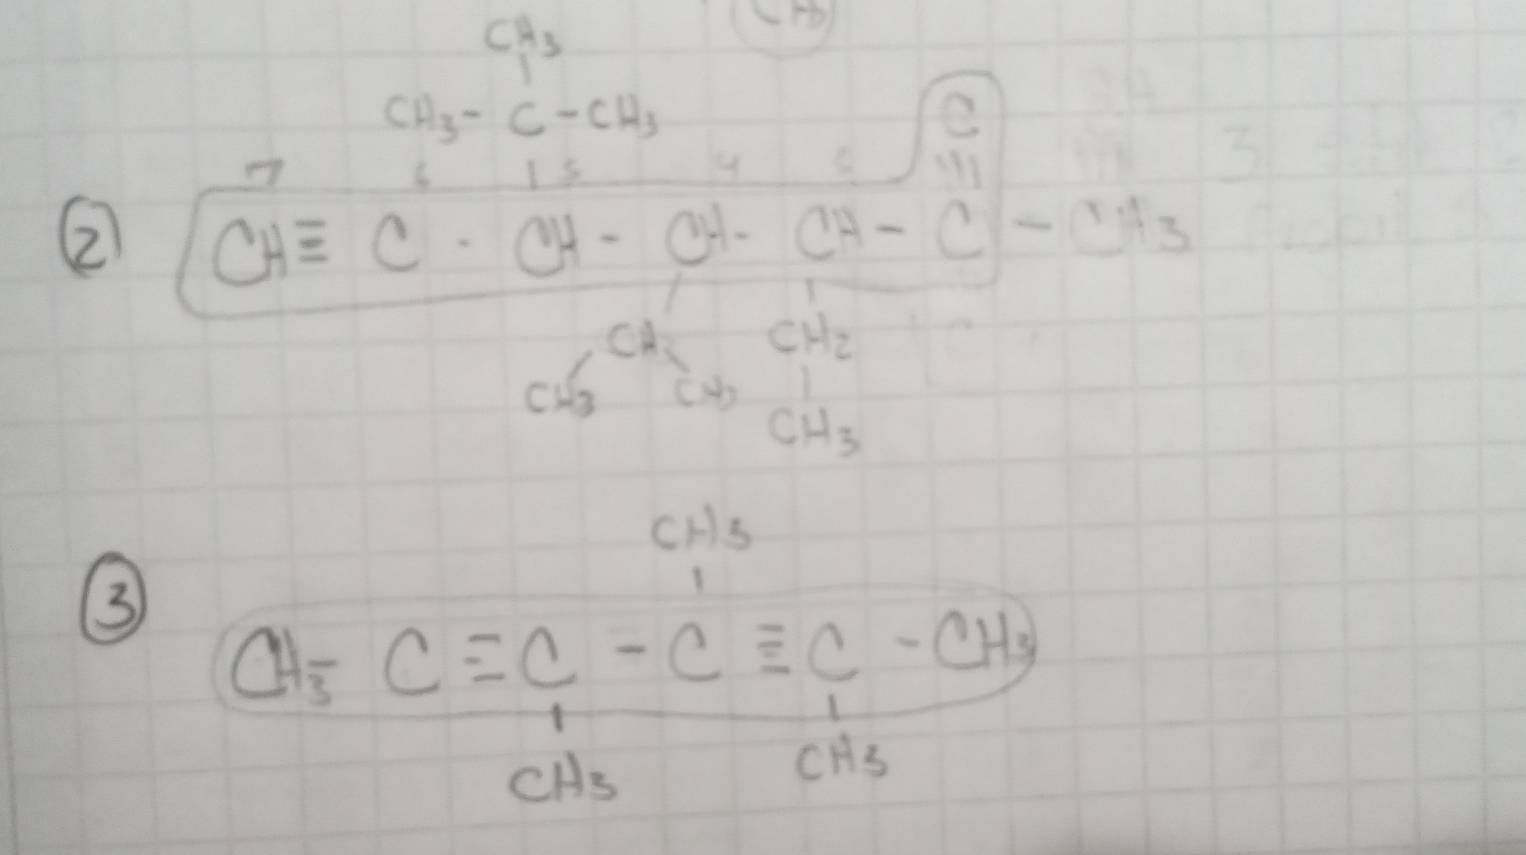 CH3
CH3 - C - CH3
C
7 6 5 4
② CH ≡ C - CH - CH - CH - C - CH3
CH CH2
CH3 CH3
CH3
CH3
③ CH3 - C ≡ C - C ≡ C - CH3
CH3 CH3